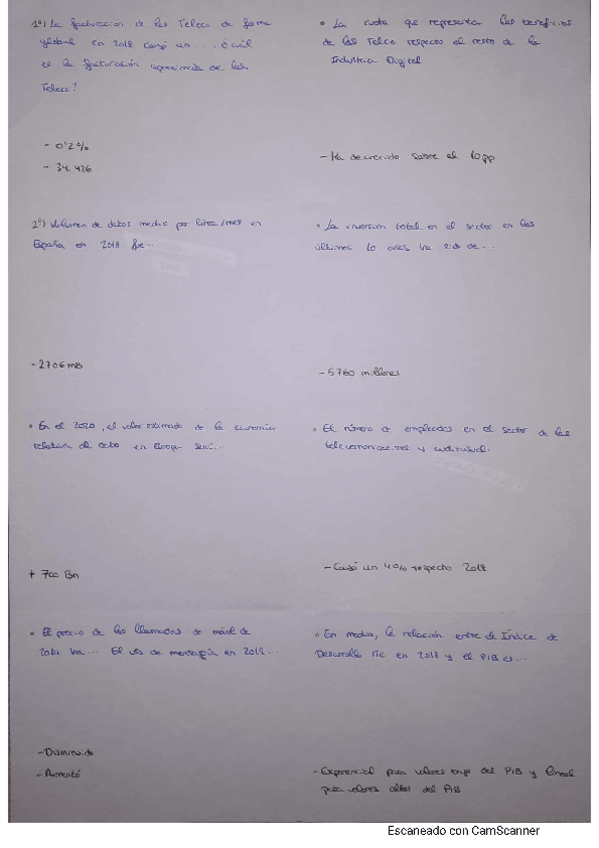 1º) La facturación de las Teleco de forma
global en 2018 cayó un.... ¿cuál
es la facturación aproximada de las
Teleco?
- 0'2%
- 34.426
2º) Volumen de datos medio por línea/mes en
España en 2018 fue...
- 2706 MB
• En el 2020, el valor estimado de la economía
relativa al dato en Europa será...
+ 700 Bn
• El precio de las llamadas de móvil de
ha... El uso de mensajería en 2018...
- Disminuido
- Aumentó
• La cuota que representa los beneficios
de las Telco respecto el resto de la
Industria Digital
- Ha decrecido sobre el 10pp
• La inversión total en el sector en los
últimos 10 años ha sido de...
- 5760 millones
• El número de empleados en el sector de las
telecomunicaciones y audiovisual.
- Cayó un 4% respecto 2017
• En media, la relación entre el Índice de
Desarrollo TIC en 2017 y el PIB es...
- Exponencial para valores bajo del PIB y lineal
para valores altos del PIB
Escaneado con CamScanner